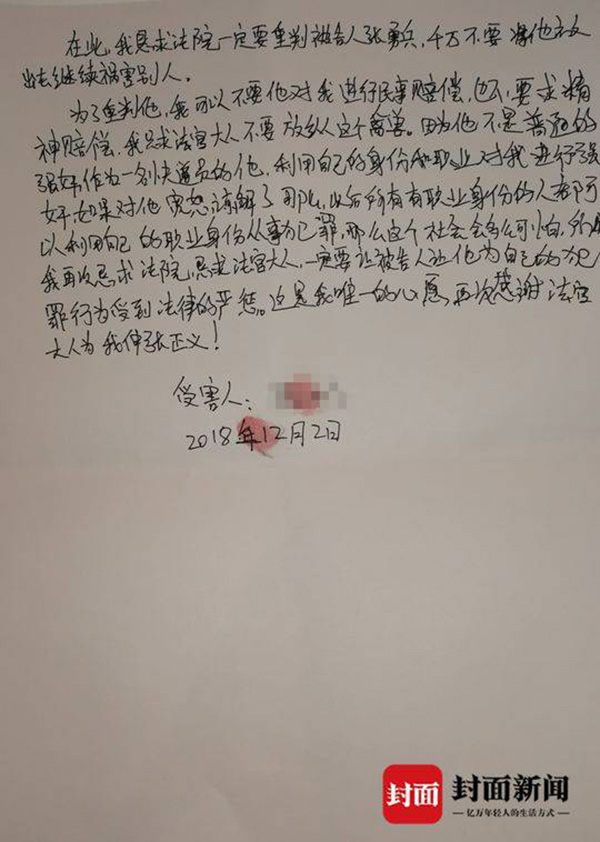 在此,我恳求法院一定要重判被告人张勇兵,千万不要将他放
出去继续祸害别人。
为了重判他,我可以不要他对我进行民事赔偿,也不要求精
神赔偿,我只求法官大人不要放纵这个禽兽。因为他不是普通的
强奸,作为一名快递员的他,利用自己的身份和职业对我进行强
奸,如果对他宽恕谅解了,那么,以后所有有职业身份的人都可
以利用自己的职业身份从事犯罪,那么这个社会会多么可怕,
我再次恳求法院,恳求法官大人,一定要让被告人让他为自己的犯
罪行为受到法律的严惩。这是我唯一的心愿,再次感谢法官
大人为我伸张正义!
受害人:
2018年12月2日
封面 封面新闻
亿万年轻人的生活方式